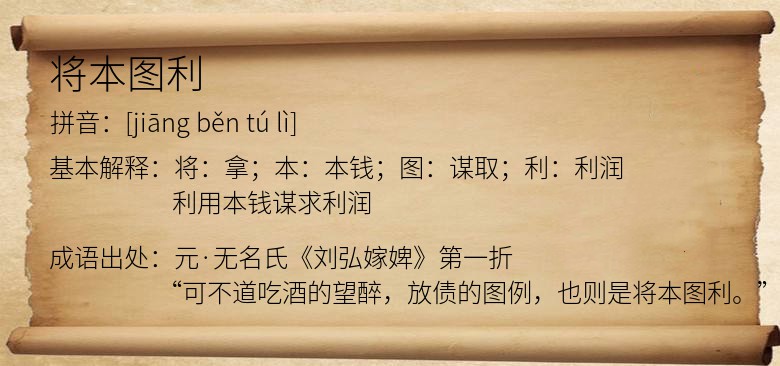 将本图利
拼音：[jiāng běn tú lì]
基本解释：将：拿；本：本钱；图：谋取；利：利润
利用本钱谋求利润
成语出处：元·无名氏《刘弘嫁婢》第一折
“可不道吃酒的望醉，放债的图例，也则是将本图利。”